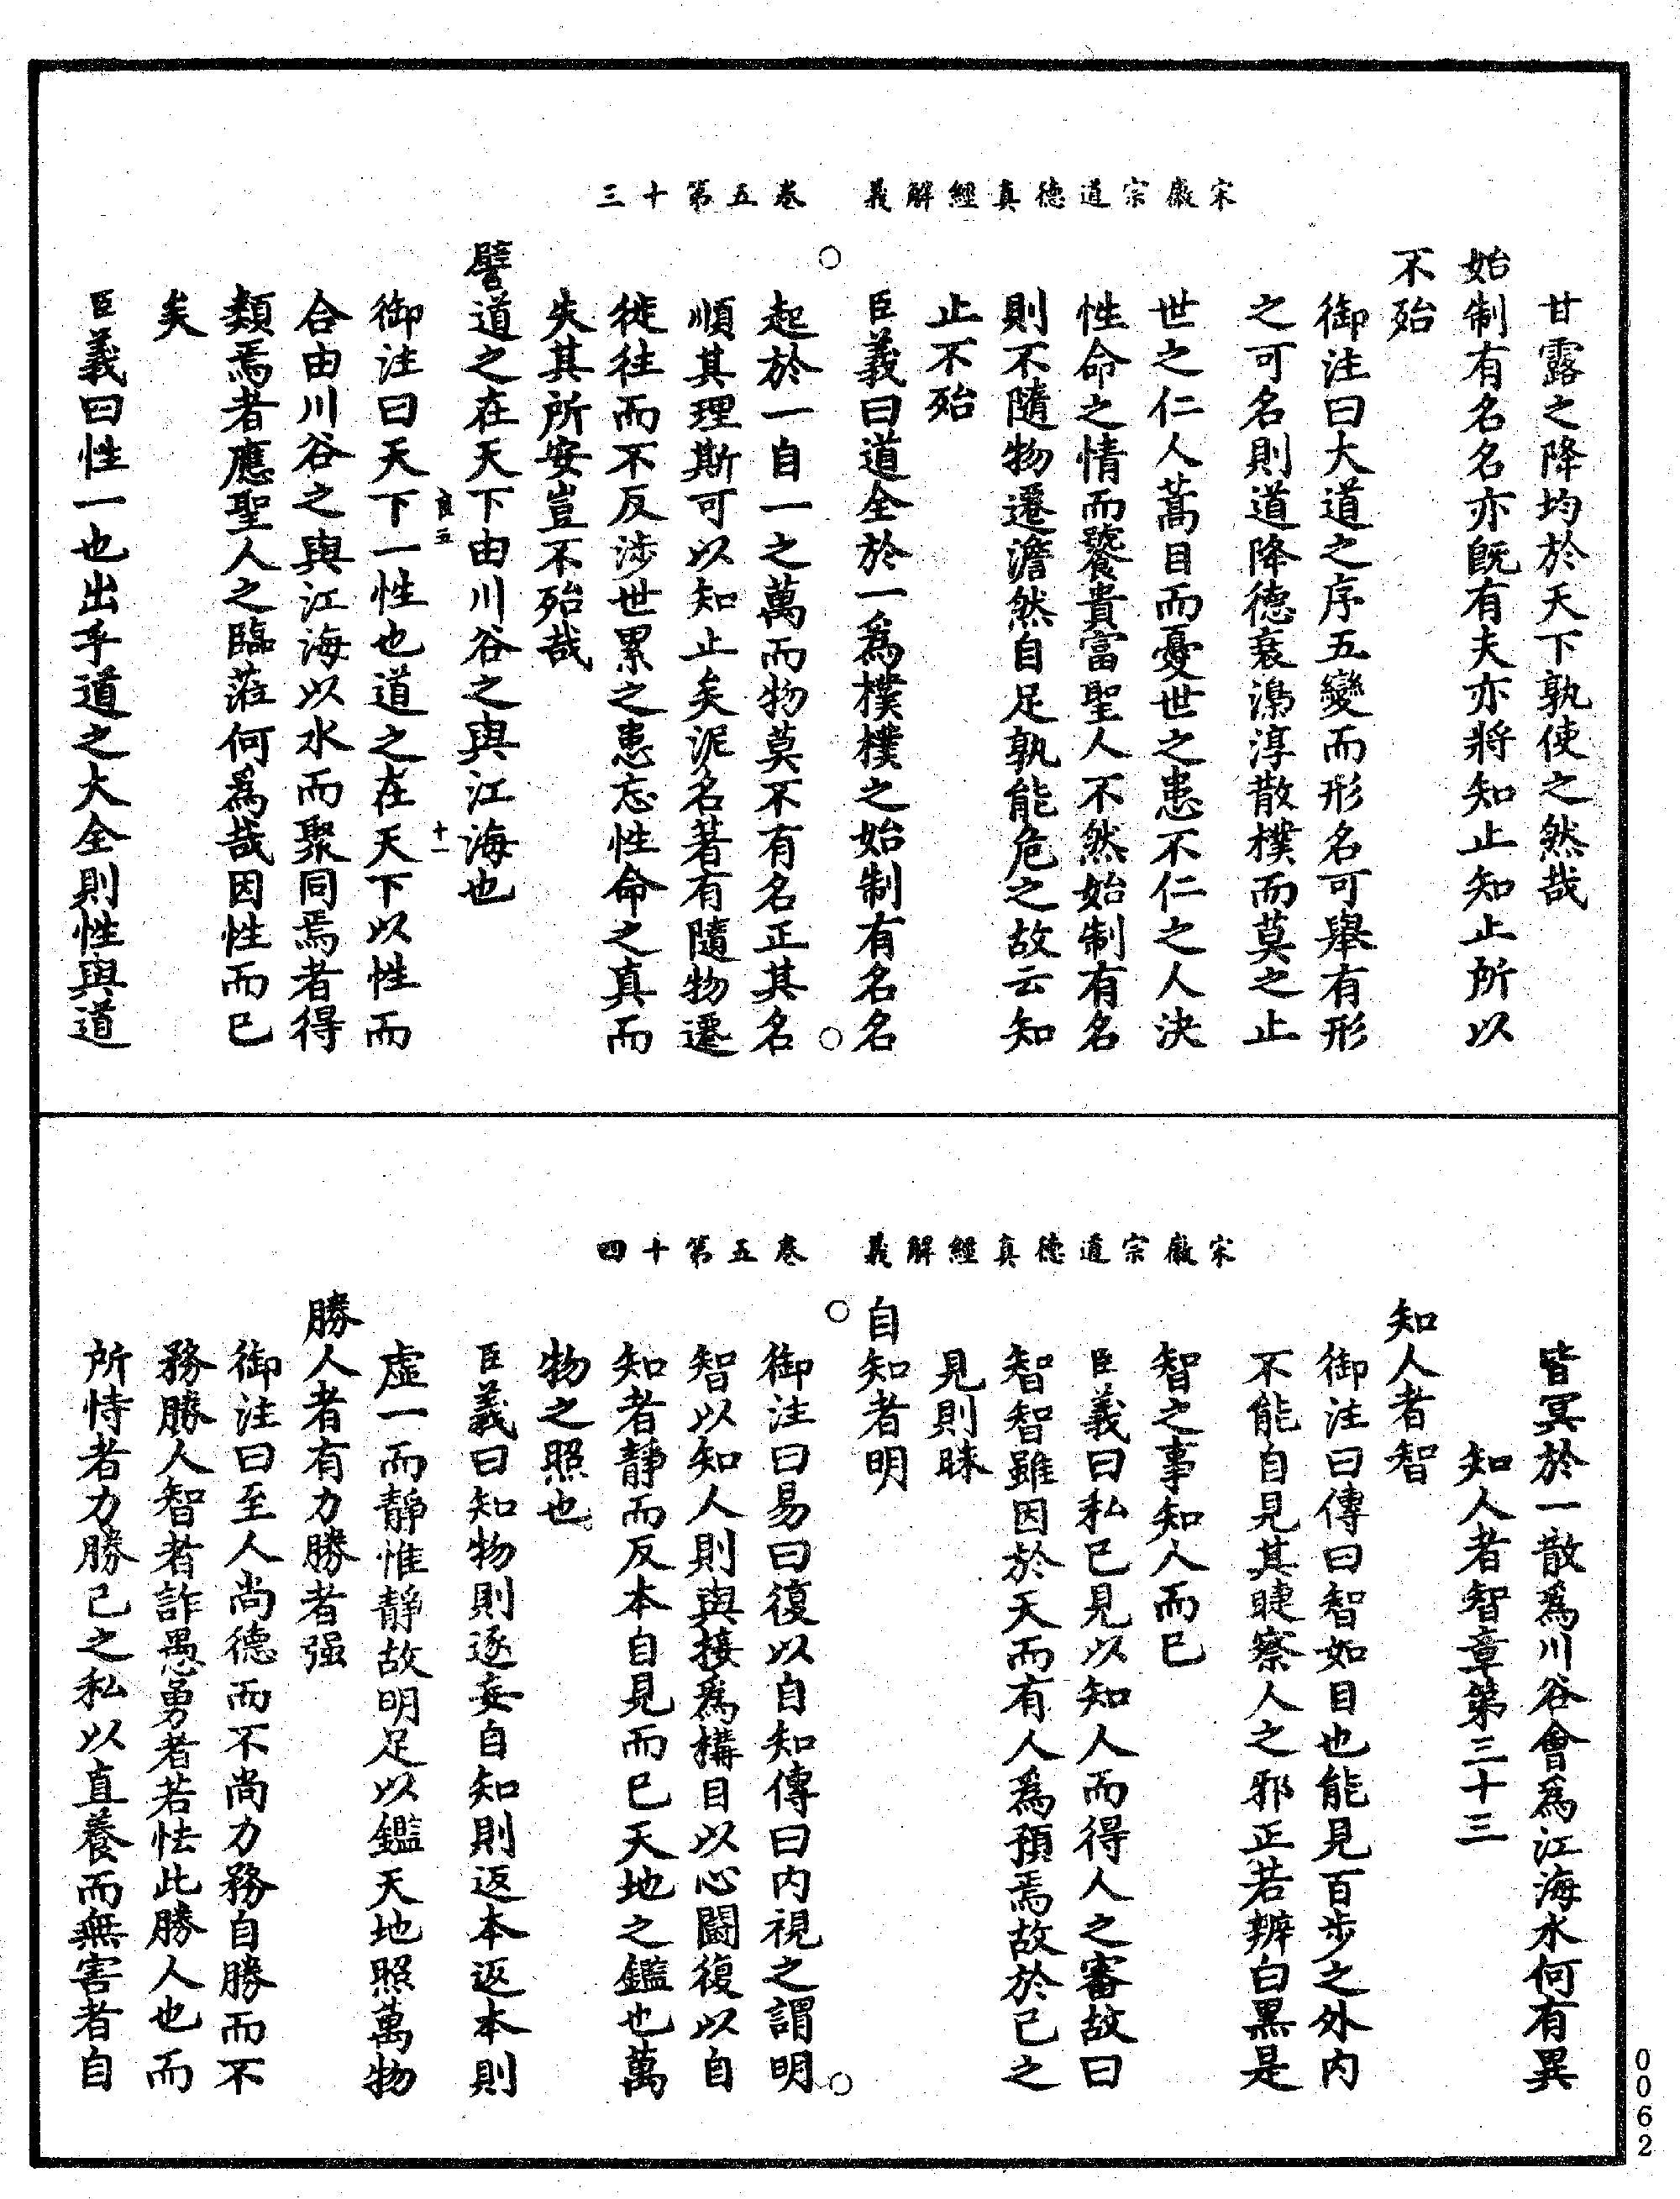 宋徽宗道德真經解義　卷五第十三
甘露之降均於天下孰使之然哉
始制有名名亦旣有夫亦將知止知止所以
不殆
御注曰大道之序五變而形名可舉有形
之可名則道降德衰澆淳散樸而莫之止
世之仁人蒿目而憂世之患不仁之人決
性命之情而饕貴富聖人不然始制有名
則不隨物遷澹然自足孰能危之故云知
止不殆
臣義曰道全於一爲樸樸之始制有名名
起於一自一之萬而物莫不有名正其名
順其理斯可以知止矣泥名著有隨物遷
徙往而不反涉世累之患忘性命之真而
失其所安豈不殆哉
譬道之在天下由川谷之與江海也
良五　十一
御注曰天下一性也道之在天下以性而
合由川谷之與江海以水而聚同焉者得
類焉者應聖人之臨蒞何爲哉因性而已
矣
臣義曰性一也出乎道之大全則性與道
宋徽宗道德真經解義　卷五第十四
皆冥於一散爲川谷會爲江海水何有異
知人者智章第三十三
知人者智
御注曰傳曰智如目也能見百步之外內
不能自見其睫察人之邪正若辨白黑是
智之事知人而已
臣義曰私已見以知人而得人之審故曰
智智雖因於天而有人爲預焉故於已之
見則昧
自知者明
御注曰易曰復以自知傳曰內視之謂明
智以知人則與接爲構目以心鬭復以自
知者靜而反本自見而已天地之鑑也萬
物之照也
臣義曰知物則逐妄自知則返本返本則
虛一而靜惟靜故明足以鑑天地照萬物
勝人者有力勝者强
御注曰至人尚德而不尚力務自勝而不
務勝人智者詐愚勇者若怯此勝人也而
所恃者力勝已之私以直養而無害者自
0062